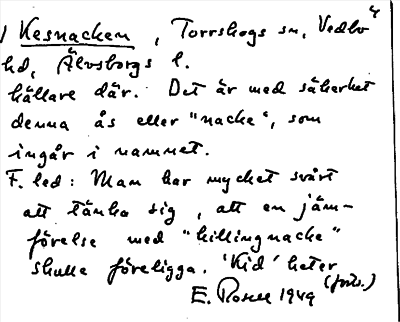 Kesnacken, Torrskogs sn, Vedbo 4
hd, Älvsborgs l.
hållare där. Det är med säkerhet
denna ås eller "nacke", som
ingår i namnet.
F. led: Man har mycket svårt
att tänka sig, att en jäm-
förelse med "killingnacke"
skulle föreligga. 'Kid' heter
(forts.)
E. Rosell 1949